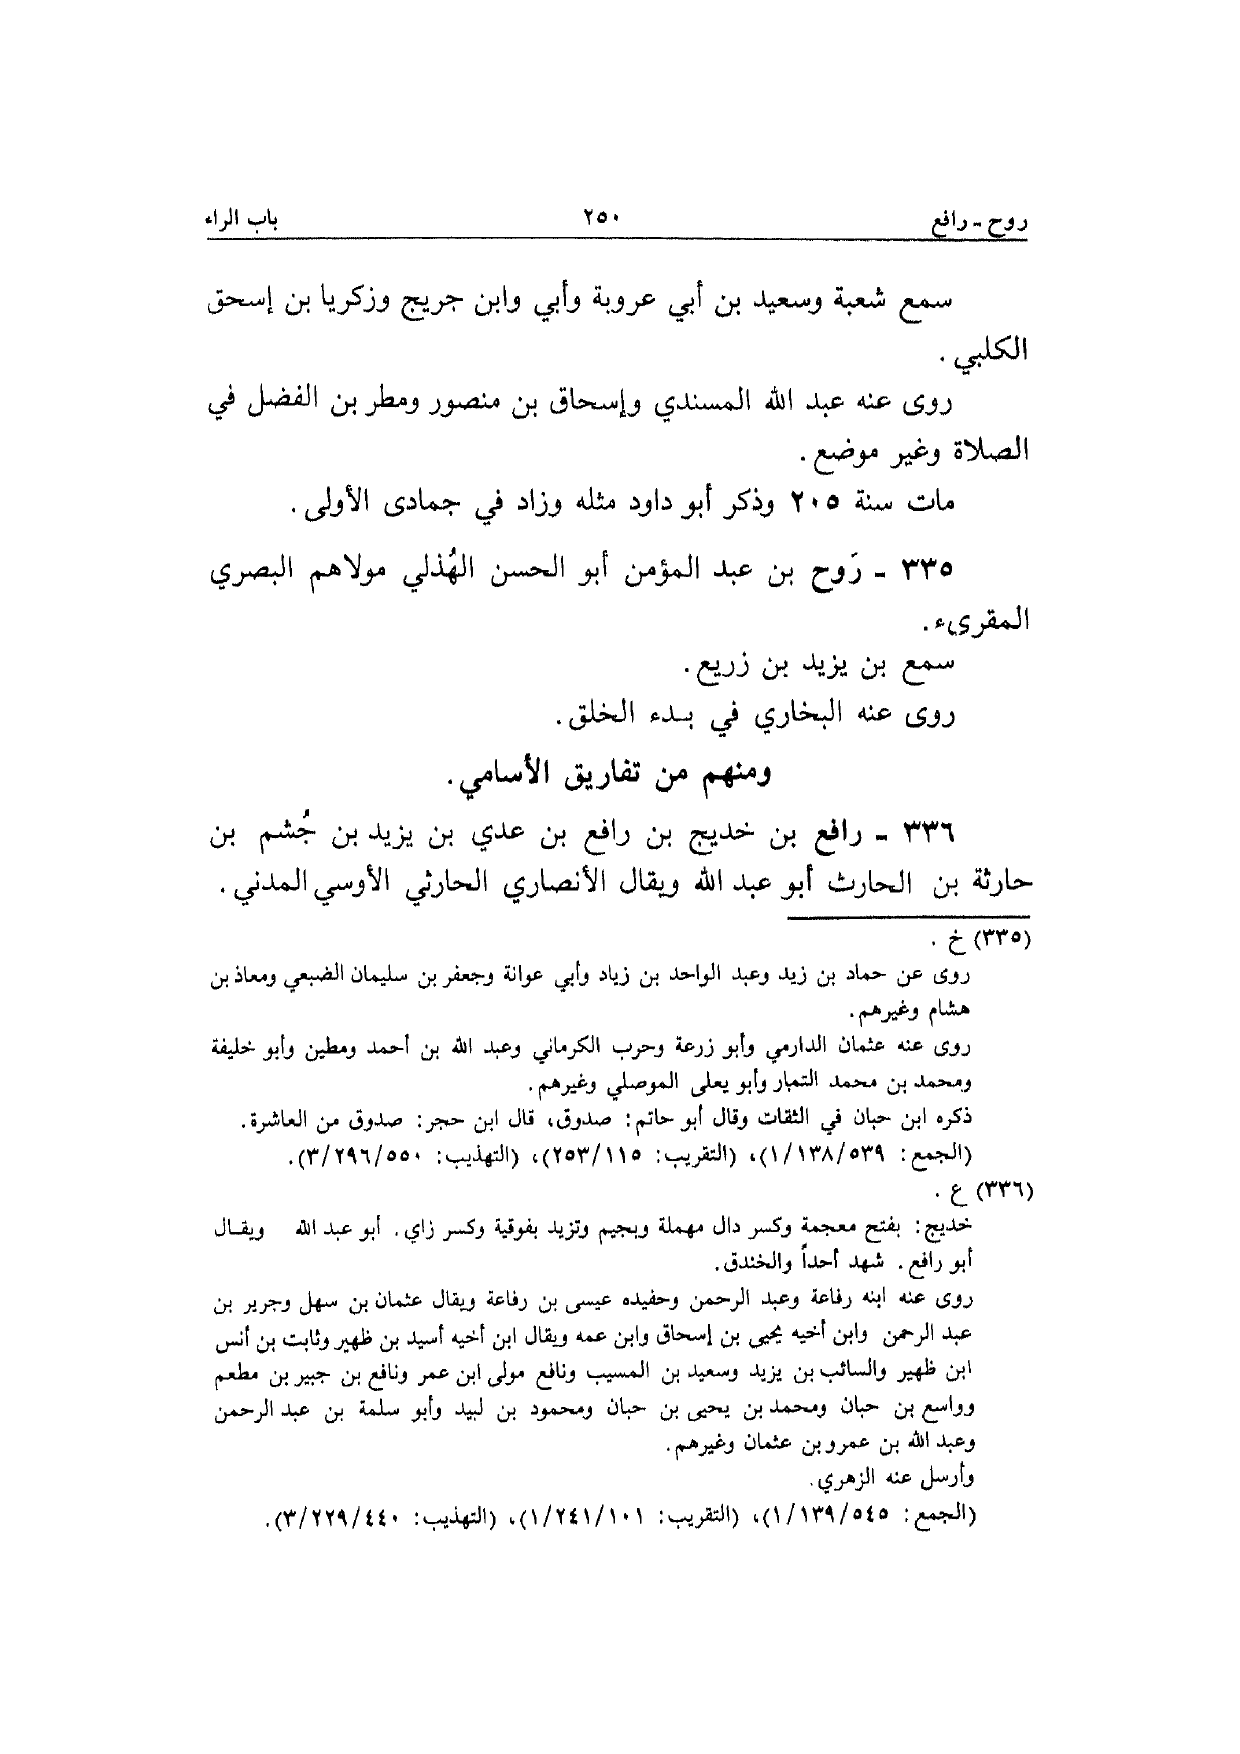 روح - رافع ٢٥٠ باب الراء
سمع شعبة وسعيد بن أبي عروبة وأبي وابن جريج وزكريا بن إسحق
الكلبي .
روى عنه عبد الله المسندي وإسحاق بن منصور ومطر بن الفضل في
الصلاة وغير موضع .
مات سنة ٢٠٥ وذكر أبو داود مثله وزاد في جمادى الأولى .
٣٣٥ - رَوح بن عبد المؤمن أبو الحسن الهُذلي مولاهم البصري
المقرىء .
سمع بن يزيد بن زريع .
روى عنه البخاري في بدء الخلق .
ومنهم من تفاريق الأسامي .
٣٣٦ - رافع بن خديج بن رافع بن عدي بن يزيد بن جُشم بن
حارثة بن الحارث أبو عبد الله ويقال الأنصاري الحارثي الأوسي المدني .
(٣٣٥) خ .
روى عن حماد بن زيد وعبد الواحد بن زياد وأبي عوانة وجعفر بن سليمان الضبعي ومعاذ بن
هشام وغيرهم .
روى عنه عثمان الدارمي وأبو زرعة وحرب الكرماني وعبد الله بن أحمد ومطين وأبو خليفة
ومحمد بن محمد التمار وأبو يعلى الموصلي وغيرهم .
ذكره ابن حبان في الثقات وقال أبو حاتم : صدوق، قال ابن حجر : صدوق من العاشرة .
(الجمع : ١/١٣٨/٥٣٩)، (التقريب : ٢٥٣/١١٥)، (التهذيب : ٣/٢٩٦/٥٥٠) .
(٣٣٦) ع .
خديج : بفتح معجمة وكسر دال مهملة وبجيم وتزيد بفوقية وكسر زاي . أبو عبد الله ويقال
أبو رافع . شهد أحداً والخندق .
روى عنه ابنه رفاعة وعبد الرحمن وحفيده عيسى بن رفاعة ويقال عثمان بن سهل وجرير بن
عبد الرحمن وابن أخيه يحيى بن إسحاق وابن عمه ويقال ابن أخيه أسيد بن ظهير وثابت بن أنس
ابن ظهير والسائب بن يزيد وسعيد بن المسيب ونافع مولى ابن عمر ونافع بن جبير بن مطعم
وواسع بن حبان ومحمد بن يحيى بن حبان ومحمود بن لبيد وأبو سلمة بن عبد الرحمن
وعبد الله بن عمرو بن عثمان وغيرهم .
وأرسل عنه الزهري .
(الجمع : ١/١٣٩/٥٤٥)، (التقريب : ١/٢٤١/١٠١)، (التهذيب : ٣/٢٢٩/٤٤٠) .